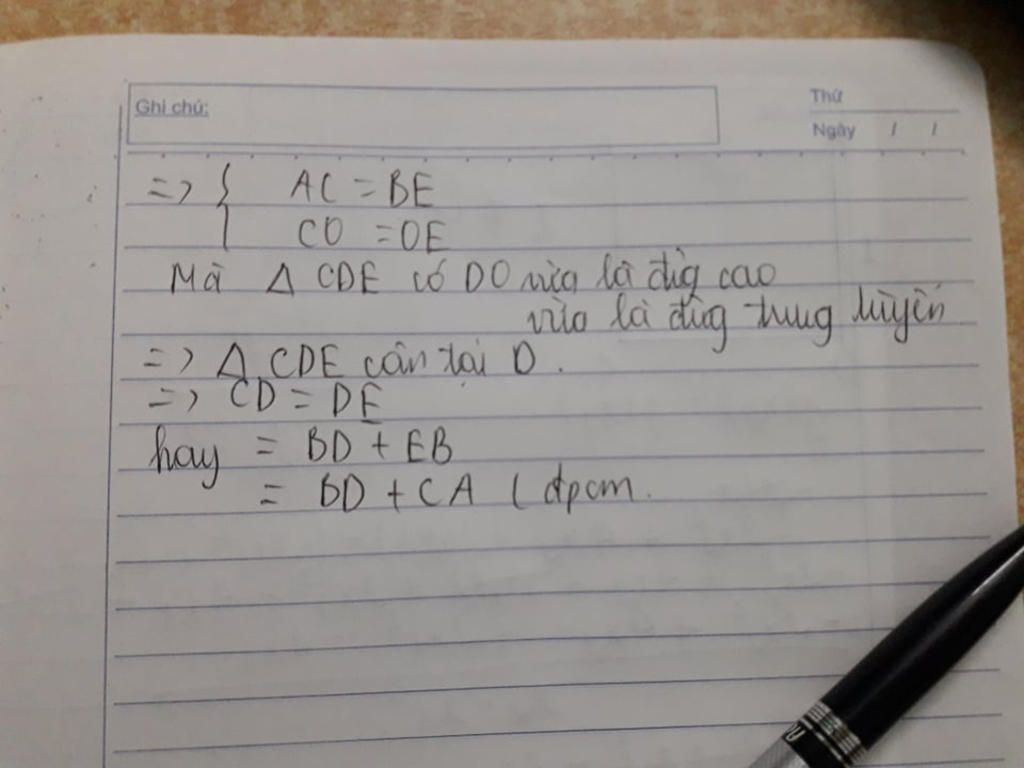 Ghi chú:
Thứ
Ngày / /
=> { AC = BE
CO = OE
Mà Δ CDE có DO vừa là đừg cao
vừa là đừg trung tuyến
=> Δ CDE cân tại D.
=> CD = DE
hay = BD + EB
= BD + CA ( đpcm.